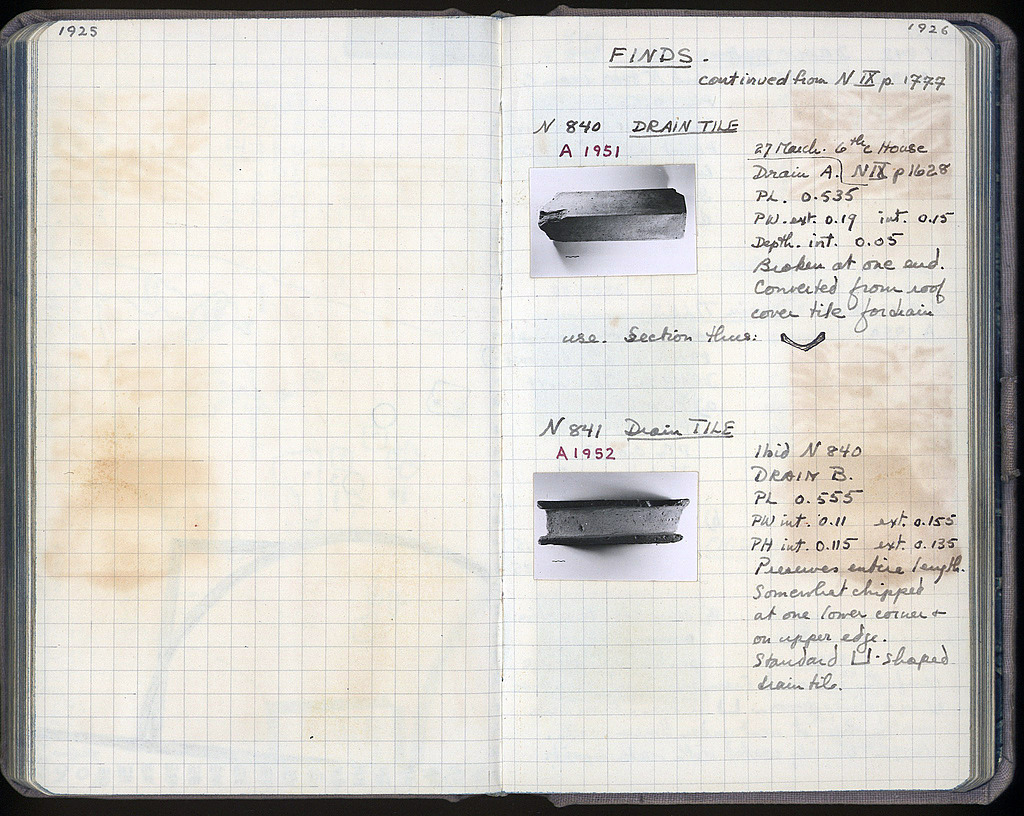 1925
1926
FINDS.
continued from N IX p. 1777
N 840 DRAIN TILE
A 1951
27 March. 6th c House
Drain A. N IX p 1628
PL. 0.535
PW. ext. 0.19 int. 0.15
Depth. int. 0.05
Broken at one end.
Converted from roof
cover tile for drain
use. Section thus:
N 841 Drain TILE
A 1952
Ibid N 840
DRAIN B.
PL 0.555
PW int. 0.11 ext. 0.155
PH int. 0.115 ext. 0.135
Preserves entire length.
Somewhat chipped
at one lower corner +
on upper edge.
Standard ⊔-shaped
drain tile.